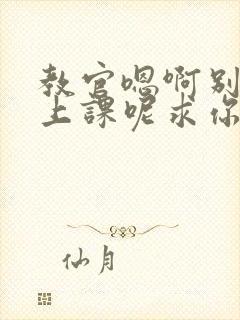 教官嗯啊别
上課呢求你
仙月